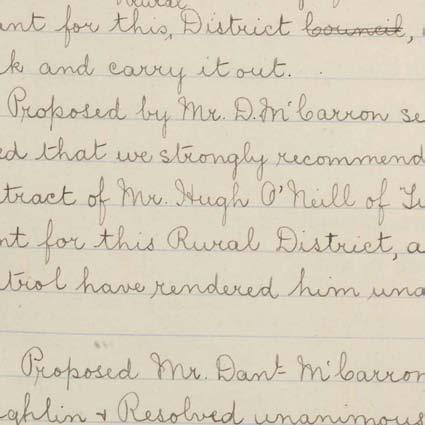 Rural
ant for this, District Council,
k and carry it out.
Proposed by Mr. D. McCarron se
ed that we strongly recommend
tract of Mr. Hugh O'Neill of Tu
nt for this Rural District, a
trol have rendered him una
Proposed Mr. Danl McCarron
ghlin & Resolved unanimous